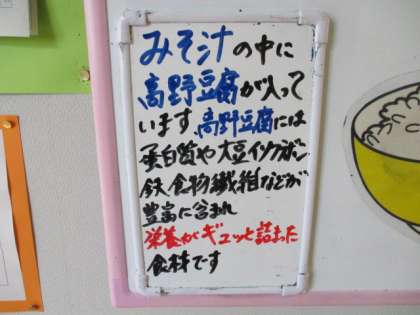 みそ汁の中に
高野豆腐が入って
います。高野豆腐には
蛋白質や大豆イソフラボン
鉄食物繊維などが
豊富に含まれ
栄養がギュッと詰まった
食材です